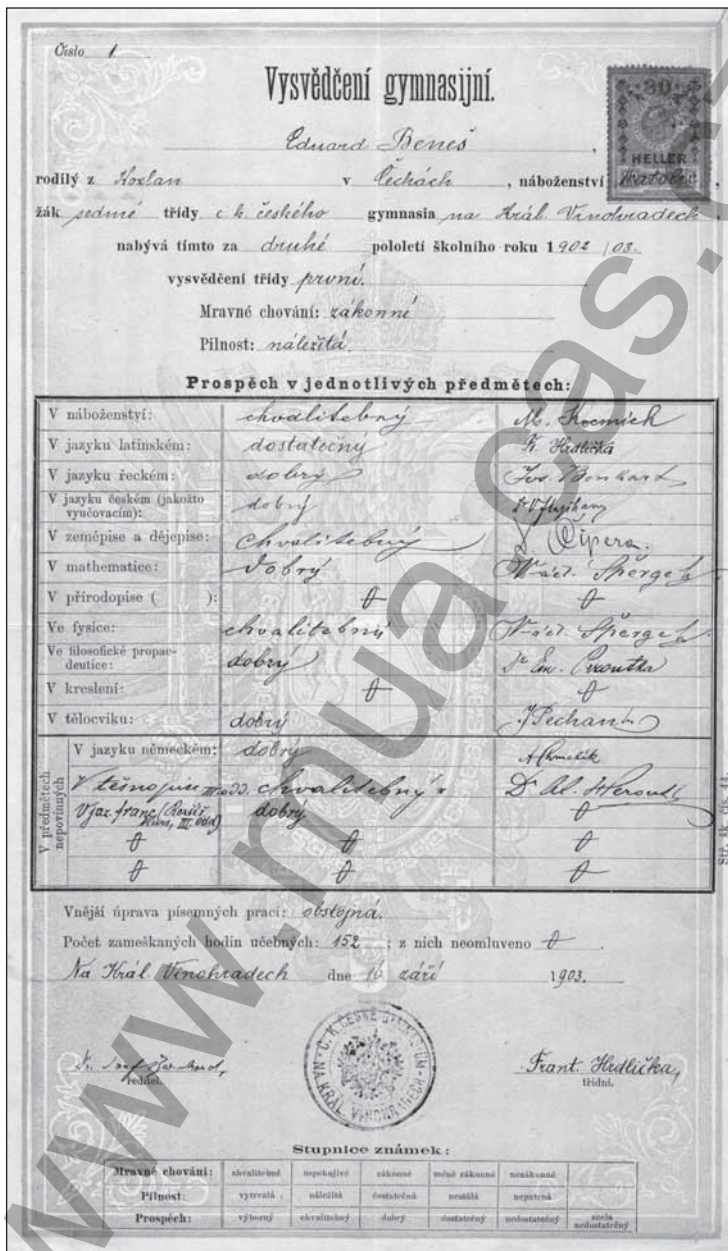 Číslo 1
Vysvědčení gymnasijní.
30
HELLER
Eduard Beneš,
rodilý z Kozlan v Čechách, náboženství katol.,
žák sedmé třídy c. k. českého gymnasia na Král. Vinohradech,
nabývá tímto za druhé pololetí školního roku 1902/03.
vysvědčení třídy první.
Mravné chování: zákonné
Pilnost: náležitá.
Prospěch v jednotlivých předmětech:
V náboženství: chvalitebný M.
V jazyku latinském: dostatečný Fr. Hrdlička
V jazyku řeckém: dobrý Jos.
V jazyku českém (jakožto
vyučovacím): dobrý Dr V
V zeměpise a dějepise: chvalitebný Čipera.
V mathematice: dobrý
V přírodopise ( ): 0 0
Ve fysice: chvalitebný
Ve filosofické propae-
deutice: dobrý Dr
V kreslení: 0 0
V tělocviku: dobrý J Pechan
V předmětech
nepovinných
V jazyku německém: dobrý A. Chmelík
V těsnopisu III odd. chvalitebný Dr. Al. Herout
V jaz. franc. dobrý 0
0 0 0
0 0 0
Vnější úprava písemných prací: obstojná.
Počet zameškaných hodin učebných: 152; z nich neomluveno 0.
Na Král. Vinohradech dne 16. září 1903.
ředitel.
Frant. Hrdlička,
třídní.
C. K. ČESKÉ GYMNASIUM
NA KRÁL. VINOHRADECH
Stupnice známek:
Mravné chování: chvalitebné uspokojivé zákonné méně zákonné nezákonné
Pilnost: vytrvalá náležitá dostatečná nestálá nepatrná
Prospěch: výborný chvalitebný dobrý dostatečný nedostatečný zcela
nedostatečný
www.mua.cas.cz